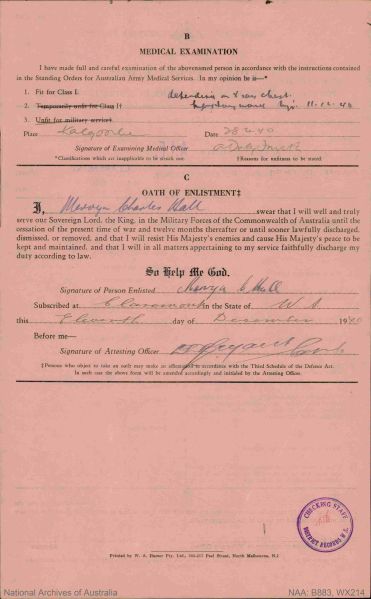 B
MEDICAL EXAMINATION
I have made full and careful examination of the abovenamed person in accordance with the instructions contained
in the Standing Orders for Australian Army Medical Services. In my opinion he is—*
1. Fit for Class I. depending on X ray chest
2. Temporarily unfit for Class I† 11.12.40
3. Unfit for military service†
Place Kalgoorlie Date 28 2.40
Signature of Examining Medical Officer
*Classifications which are inapplicable to be struck out. †Reasons for unfitness to be stated.
C
OATH OF ENLISTMENT‡
I, Mervyn Charles Hall swear that I will well and truly
serve our Sovereign Lord, the King, in the Military Forces of the Commonwealth of Australia until the
cessation of the present time of war and twelve months thereafter or until sooner lawfully discharged,
dismissed, or removed, and that I will resist His Majesty's enemies and cause His Majesty's peace to
be kept and maintained, and that I will in all matters appertaining to my service faithfully discharge my
duty according to law.
So Help Me God.
Signature of Person Enlisted Mervyn C Hall
Subscribed at Claremont in the State of W A
this Eleventh day of December 1940
Before me—
Signature of Attesting Officer
‡Persons who object to take an oath may make an affirmation in accordance with the Third Schedule of the Defence Act.
In such case the above form will be amended accordingly and initialed by the Attesting Officer.
CHECKING STAFF
DISTRICT RECORDS W.A.
Printed by W. A. Hamer Pty. Ltd., Peel Street, North Melbourne, N.1
National Archives of Australia NAA: B883, WX214